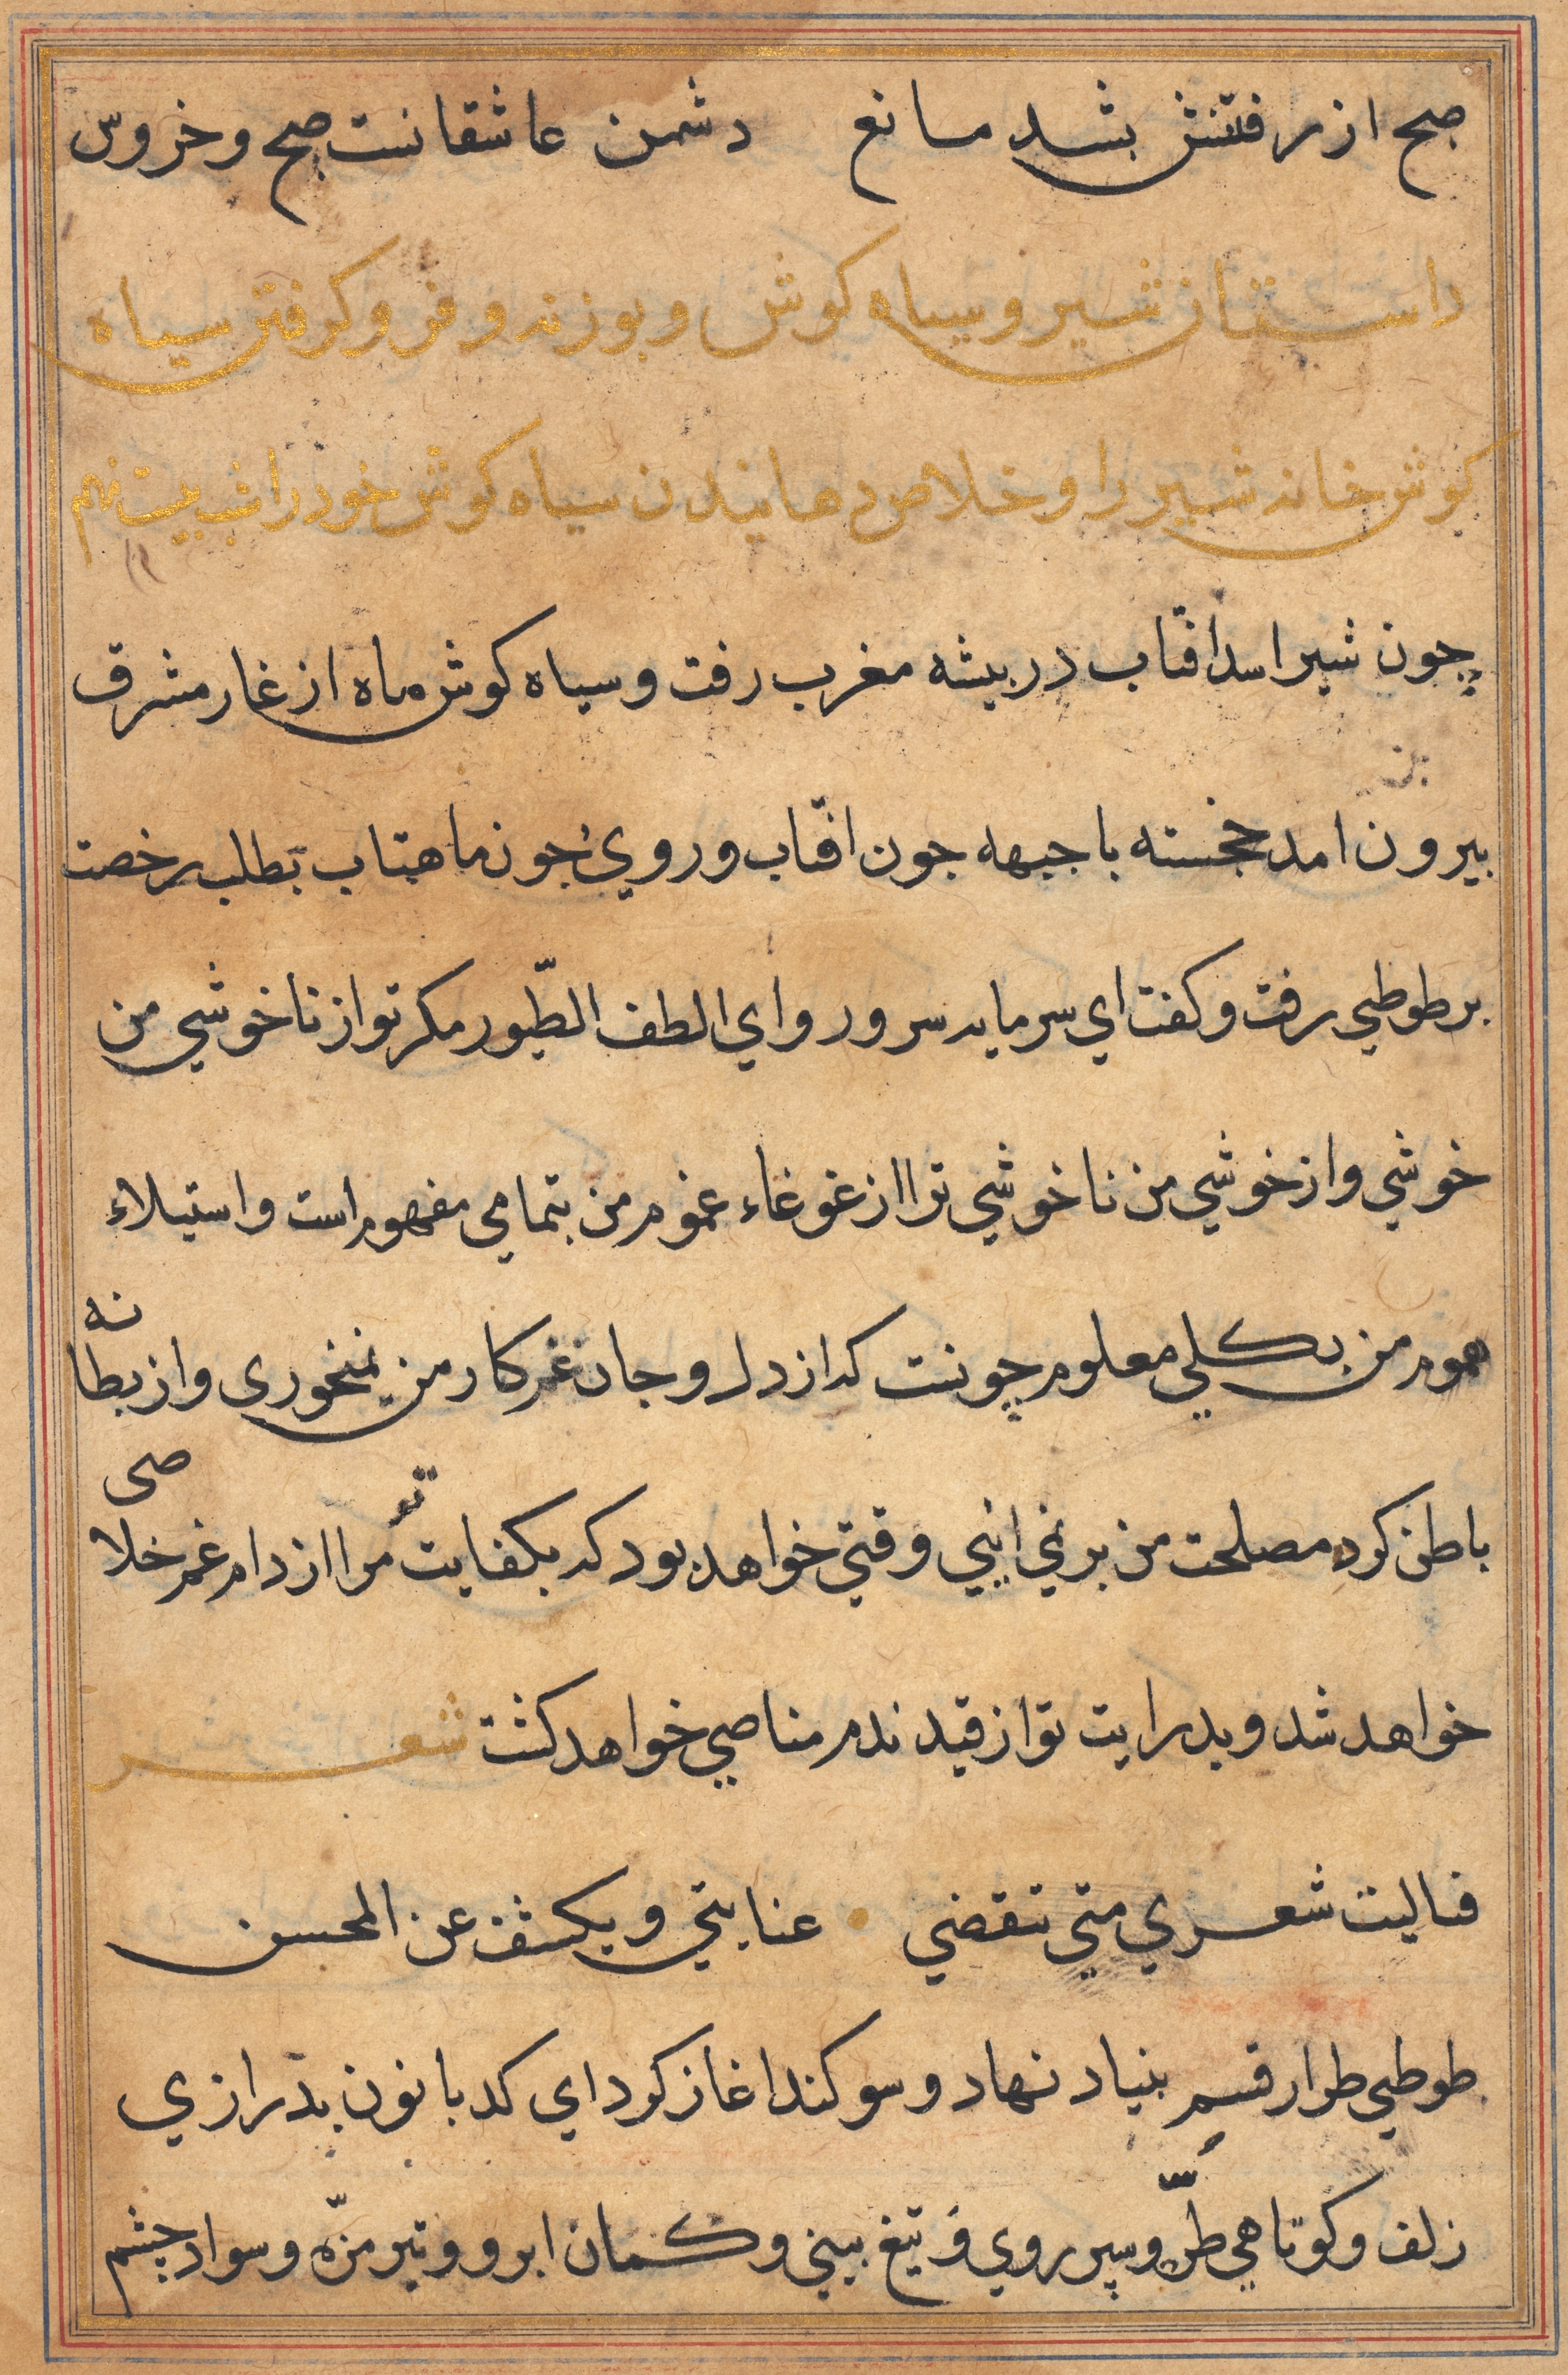 صبح از رفتنش بشد مانع دشمن عاشقانست صبح و خروس
داستان شیر و سیاه کوش و بوزنه و فرو کرفتن سیاه
کوش خانه شیر را و خلاص دهانیدن سیاه کوش خود را شب بیست نهم
چون شیر اسد افتاب در بیشه مغرب رفت و سیاه کوش ماه از غار مشرق
بیرون امد خجسته با جبهه جون افتاب و روي جون ماهتاب بطلب رخصت
بر طوطي رفت و کفت اي سرمایه سرور و اي الطف الطّیور مکر تو از ناخوشي من
خوشي و از خوشي من ناخوشي ترا از غوغاء غموم من بتمامي مفهوم است و استیلاء
هموم من بکلي معلوم چونست که از دل و جان غم کار من نمیخوری و از بطانه
باطن کرد مصلحت من بر نمي ایي وقتي خواهد بود که بکفایت تو مرا از دام غم خلاصی
خواهد شد و بدرایت تو از قید ندم مناصي خواهد کشت شعر
فیالیت شعري متي تنقضي عنایتي ویکشف عن المحسن
طوطي طرار قسم بنیاد نهاد و سوکند اغاز کرد اي کدبانو ن بدرازي
زلف و کوتاهي طرّه و سپر روي و تیغ بیني و کمان ابرو و تیر مژّه و سواد چشم